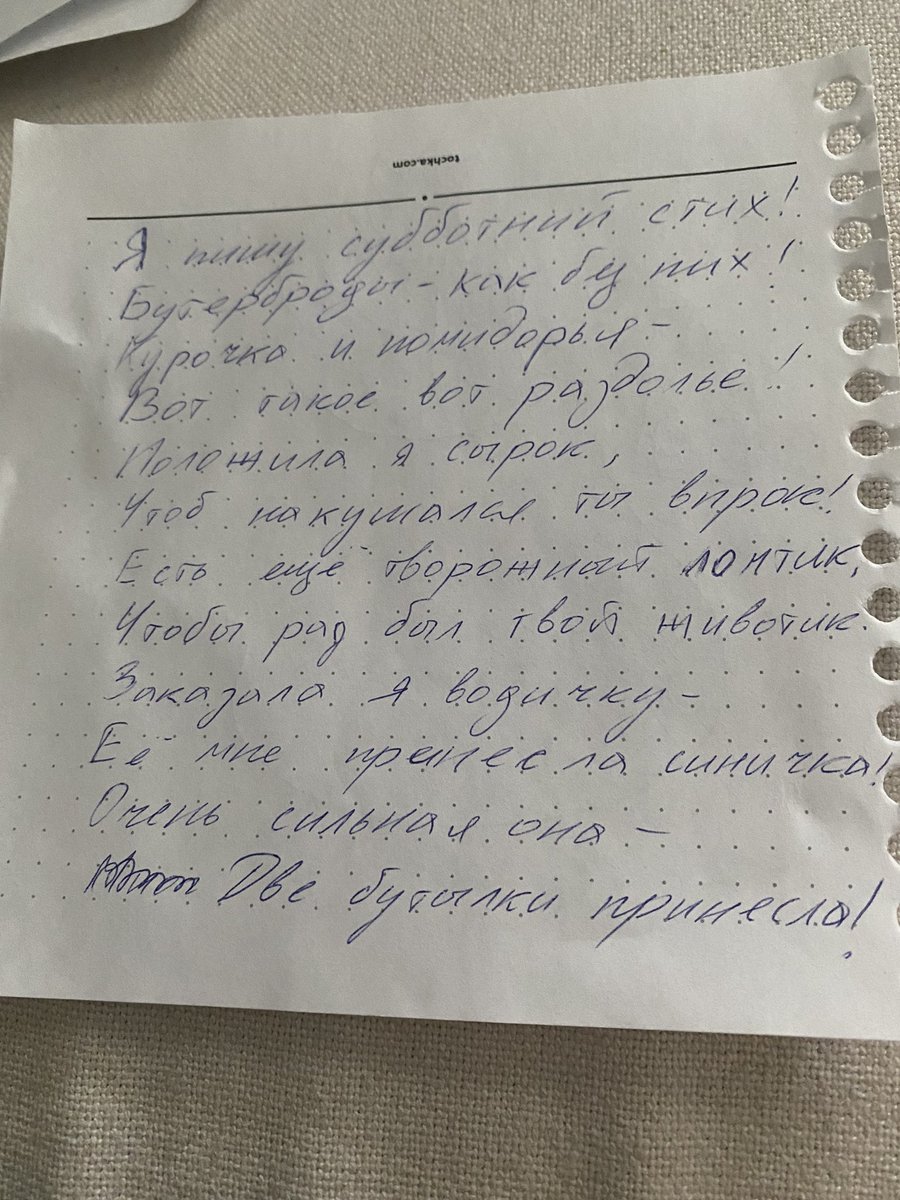 tochka.com
Я пишу субботний стих!
Бутерброды - как бы пих!
Курочка и помидорья -
Вот такое вот раздолье!
Положила я сырок,
Чтоб накушался ты впрок!
Есть ещё творожный лоптик,
Чтобы рад был твой животик.
Заказала я водичку -
Её мне принесла синичка!
Очень сильная она -
Две бутылки принесла!